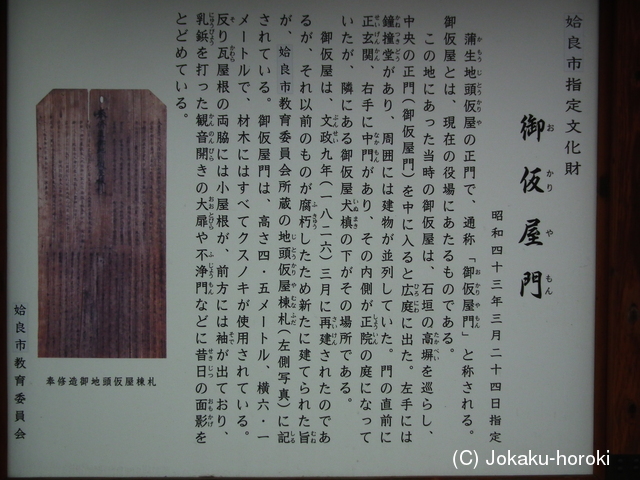 姶良市指定文化財
御仮屋門
おかりやもん
昭和四十三年三月二十四日指定
蒲生地頭仮屋の正門で、通称「御仮屋門」と称される。
御仮屋とは、現在の役場にあたるものである。
この地にあった当時の御仮屋は、石垣の高塀を巡らし、
中央の正門(御仮屋門)を中に入ると広庭に出た。左手には
鐘撞堂があり、周囲には建物が並列していた。門の直前に
正玄関、右手に中門があり、その内側が正院の庭になって
いたが、隣にある御仮屋犬槙の下がその場所である。
御仮屋は、文政九年(一八二六)三月に再建されたのであ
るが、それ以前のものが腐朽したため新たに建てられた旨
が、姶良市教育委員会所蔵の地頭仮屋棟札(左側写真)に記
されている。御仮屋門は、高さ四・五メートル、横六・一
メートルで、材木にはすべてクスノキが使用されている。
反り瓦屋根の両脇には小屋根が、前方には袖が出ており、
乳鋲を打った観音開きの大扉や不浄門などに昔日の面影を
とどめている。
奉修造御地頭仮屋棟札
姶良市教育委員会
(C) Jokaku-horoki